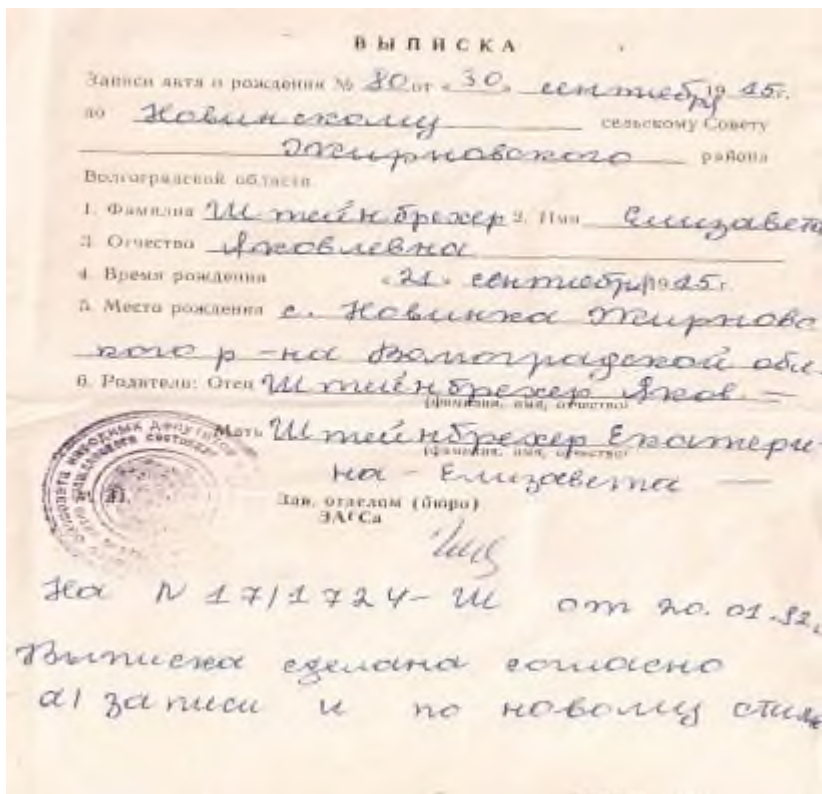 ВЫПИСКА
Записи акта о рождении № 80 от «30» сентября 19 15г.
по Новинскому сельскому Совету
Жирновского района
Волгоградской области
1. Фамилия Штейнбрехер 2. Имя Елизавета
3. Отчество Яковлевна
4. Время рождения «21» сентября 1915г.
5. Место рождения с. Новинка Жирновс
кого р-на Волгоградской обл.
6. Родители: Отец Штейнбрехер Яков —
(фамилия, имя, отчество)
Мать Штейнбрехер Екатери-
(фамилия, имя, отчество)
на - Елизавета —
Зав. отделом (бюро)
ЗАГСа
На N 17/1724-Ш от 20.01.92.
Выписка сделана согласно
а/записи и по новому стилю